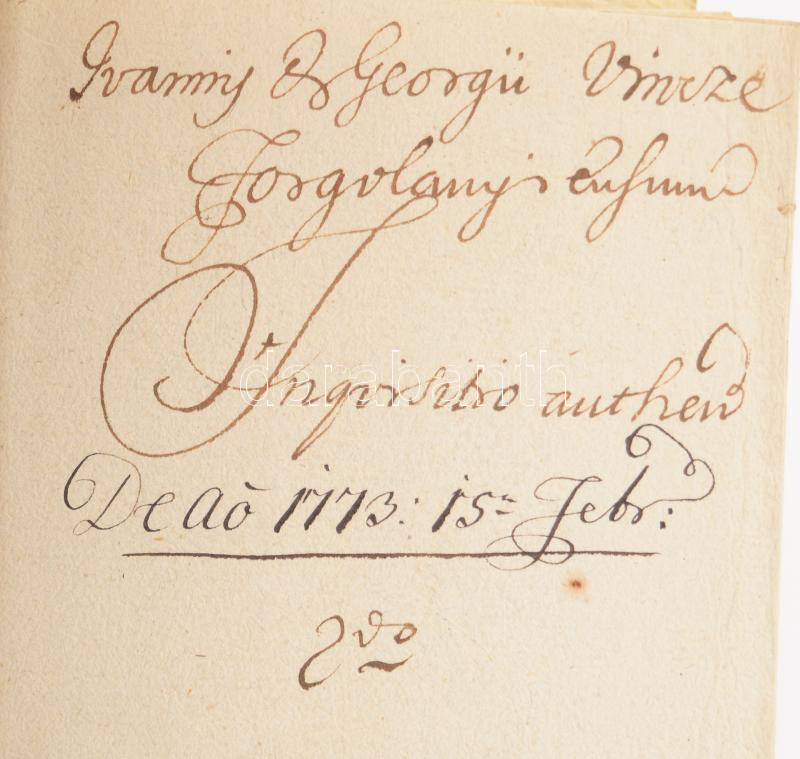 Ivannis & Georgii Vincze
Forgolanyiensium
Inqvisitio authen
darabanth
De Aō 1773: 15ª Febr:
2do